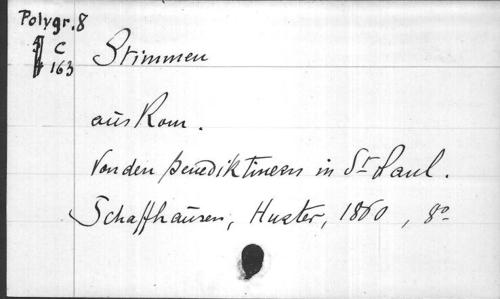 Polygr. 8
C
163
Stimmen
aus Rom.
Von den Benediktinern in St Paul.
Schaffhausen, Hurter, 1860, 8º